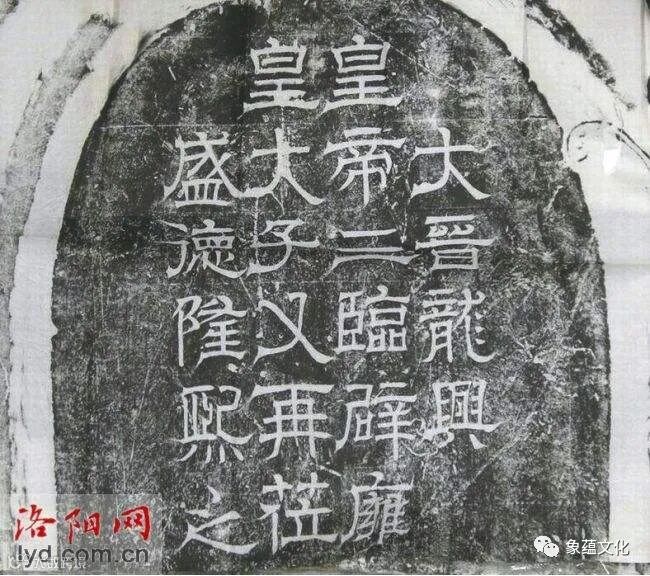 大晉龍興
皇帝三臨辟雍
皇大子又再莅
盛徳隆熙之
洛阳网
lyd.com.cn
象蕴文化